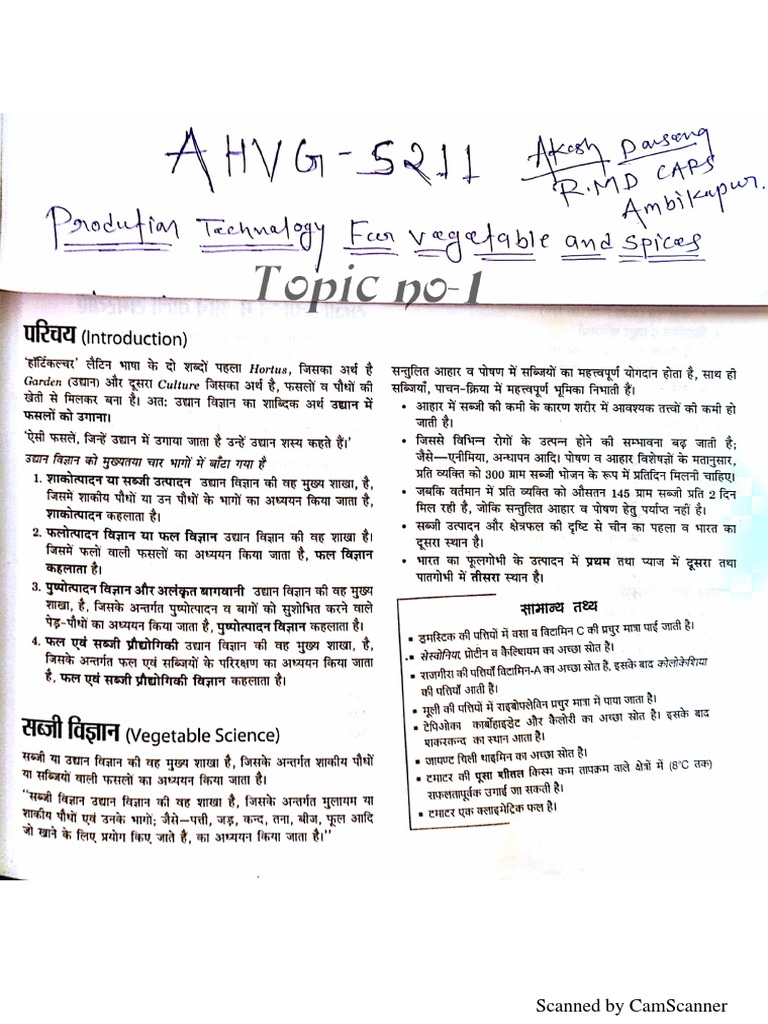 AHVG-5211
Akash
R.MD CAPS
Ambikapur.
Prodution Technology For vegetable and spices
Topic no-1
परिचय (Introduction)
'हॉर्टिकल्चर' लैटिन भाषा के दो शब्दों पहला Hortus, जिसका अर्थ है
Garden (उद्यान) और दूसरा Culture जिसका अर्थ है, फसलों व पौधों की
खेती से मिलकर बना है। अतः उद्यान विज्ञान का शाब्दिक अर्थ उद्यान में
फसलों को उगाना।
'ऐसी फसले, जिन्हें उद्यान में उगाया जाता है उन्हें उद्यान शस्य कहते हैं।'
उद्यान विज्ञान को मुख्यतया चार भागों में बाँटा गया है
1. शाकोत्पादन या सब्जी उत्पादन उद्यान विज्ञान की वह मुख्य शाखा, है,
जिसमे शाकीय पौधों या उन पौधों के भागों का अध्ययन किया जाता है,
शाकोत्पादन कहलाता है।
2. फलोत्पादन विज्ञान या फल विज्ञान उद्यान विज्ञान की वह शाखा है।
जिसमें फलों वाली फसलों का अध्ययन किया जाता है, फल विज्ञान
कहलाता है।
3. पुष्पोत्पादन विज्ञान और अलंकृत बागवानी उद्यान विज्ञान की वह मुख्य
शाखा, है, जिसके अन्तर्गत पुष्पोत्पादन व बागों को सुशोभित करने वाले
पेड़-पौधों का अध्ययन किया जाता है, पुष्पोत्पादन विज्ञान कहलाता है।
4. फल एवं सब्जी प्रौद्योगिकी उद्यान विज्ञान की वह मुख्य शाखा, है,
जिसके अन्तर्गत फल एवं सब्जियों के परिरक्षण का अध्ययन किया जाता
है, फल एवं सब्जी प्रौद्योगिकी विज्ञान कहलाता है।
सब्जी विज्ञान (Vegetable Science)
सब्जी या उद्यान विज्ञान की वह मुख्य शाखा है, जिसके अन्तर्गत शाकीय पौधों
या सब्जियों वाली फसलों का अध्ययन किया जाता है।
"सब्जी विज्ञान उद्यान विज्ञान की वह शाखा है, जिसके अन्तर्गत मुलायम या
शाकीय पौधों एवं उनके भागों; जैसे—पत्ती, जड़, कन्द, तना, बीज, फूल आदि
जो खाने के लिए प्रयोग किए जाते है, का अध्ययन किया जाता है।"
सन्तुलित आहार व पोषण में सब्जियों का महत्त्वपूर्ण योगदान होता है, साथ ही
सब्जियाँ, पाचन-क्रिया में महत्त्वपूर्ण भूमिका निभाती हैं।
• आहार में सब्जी की कमी के कारण शरीर में आवश्यक तत्त्वों की कमी हो
जाती है।
• जिससे विभिन्न रोगों के उत्पन्न होने की सम्भावना बढ़ जाती है;
जैसे—एनीमिया, अन्धापन आदि। पोषण व आहार विशेषज्ञों के मतानुसार,
प्रति व्यक्ति को 300 ग्राम सब्जी भोजन के रूप में प्रतिदिन मिलनी चाहिए।
• जबकि वर्तमान में प्रति व्यक्ति को औसतन 145 ग्राम सब्जी प्रति 2 दिन
मिल रही है, जोकि सन्तुलित आहार व पोषण हेतु पर्याप्त नहीं है।
• सब्जी उत्पादन और क्षेत्रफल की दृष्टि से चीन का पहला व भारत का
दूसरा स्थान है।
• भारत का फूलगोभी के उत्पादन में प्रथम तथा प्याज में दूसरा तथा
पातगोभी में तीसरा स्थान है।
सामान्य तथ्य
▪ ड्रमस्टिक की पत्तियों में वसा व विटामिन C की प्रचुर मात्रा पाई जाती है।
▪ सेस्वोनिया, प्रोटीन व कैल्शियम का अच्छा स्रोत है।
▪ राजगीरा की पत्तियाँ विटामिन-A का अच्छा स्रोत है, इसके बाद कोलोकेशिया
की पत्तियाँ आती हैं।
▪ मूली की पत्तियों में राइबोफ्लेविन प्रचुर मात्रा में पाया जाता है।
▪ टेपिओका कार्बोहाइड्रेट और कैलोरी का अच्छा स्रोत है। इसके बाद
शकरकन्द का स्थान आता है।
▪ जायण्ट चिली थाइमिन का अच्छा स्रोत है।
▪ टमाटर की पूसा शीतल किस्म कम तापक्रम वाले क्षेत्रों में (8°C तक)
सफलतापूर्वक उगाई जा सकती है।
▪ टमाटर एक क्लाइमेट्रिक फल है।
Scanned by CamScanner